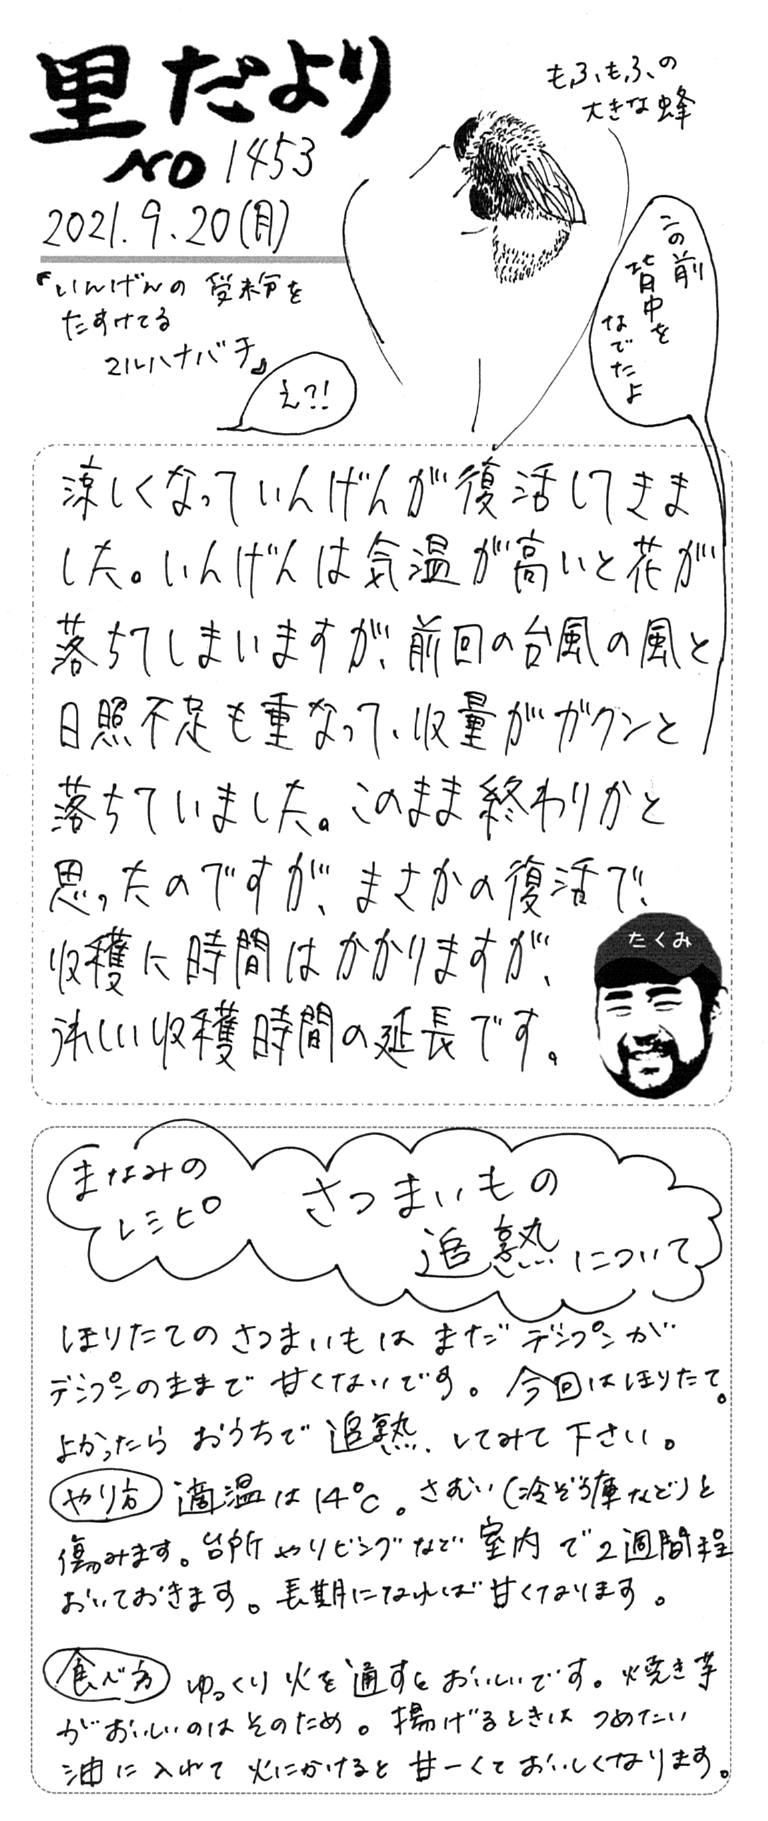 里だより
NO 1453
2021.9.20(月)
『いんげんの受粉を
たすけてる
マルハナバチ』
もふもふの
大きな蜂
この前
背中を
なでたよ
え?!
涼しくなっていんげんが復活してきま
した。いんげんは気温が高いと花が
落ちてしまいますが、前回の台風の風と
日照不足も重なって、収量がガクンと
落ちていました。このまま終わりかと
思ったのですが、まさかの復活で、
収穫に時間はかかりますが、
うれしい収穫時間の延長です。
たくみ
まなみの
レシピ
さつまいもの
追熟について
ほりたてのさつまいもはまだデンプンが
デンプンのままで甘くないです。今回はほりたて。
よかったらおうちで追熟、してみて下さい。
やり方 適温は14℃。さむい(冷ぞう庫など)と
傷みます。台所やリビングなど室内で2週間程
おいておきます。長期になれば甘くなります。
食べ方 ゆっくり火を通すとおいしいです。焼き芋
がおいしいのはそのため。揚げるときはつめたい
油に入れて火にかけると甘ーくておいしくなります。